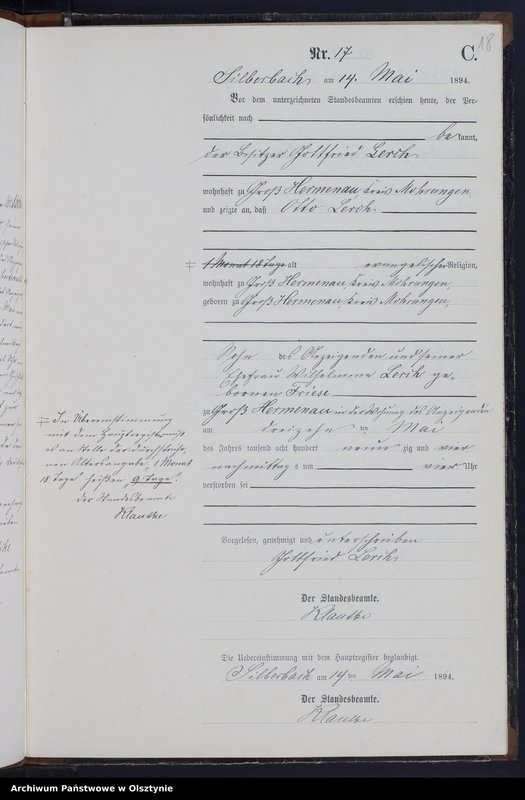 18
Nr. 17
C.
Silberbach, am 14. Mai 1894.
Vor dem unterzeichneten Standesbeamten erschien heute, der Per-
sönlichkeit nach
bekannt,
der Besitzer Gottfried Lerch,
wohnhaft zu Groß Hermenau, Kreis Mohrungen,
und zeigte an, daß Otto Lerch,
ǂ 1 Monat 18 Tage alt evangelischer Religion,
wohnhaft zu Groß Hermenau, Kreis Mohrungen,
geboren zu Groß Hermenau, Kreis Mohrungen,
Sohn des Anzeigenden und seiner
Ehefrau Wilhelmine Lerch ge-
bornen Friese
zu Groß Hermenau in der Wohnung des Anzeigenden
am dreizehn ten Mai
des Jahres tausend acht hundert neunzig und vier
nachmittags um vier Uhr
verstorben sei
ǂ In Übereinstimmung
mit dem Hauptregister muß
es an Stelle der durchstriche-
nen Altersangabe „1 Monat
18 Tage" heißen „9 Tage".
Der Standesbeamte
Klautke
Vorgelesen, genehmigt und unterschrieben
Gottfried Lerch,
Der Standesbeamte.
Klautke
Die Uebereinstimmung mit dem Hauptregister beglaubigt.
Silberbach am 14 ten Mai 1894.
Der Standesbeamte.
Klautke
Archiwum Państwowe w Olsztynie